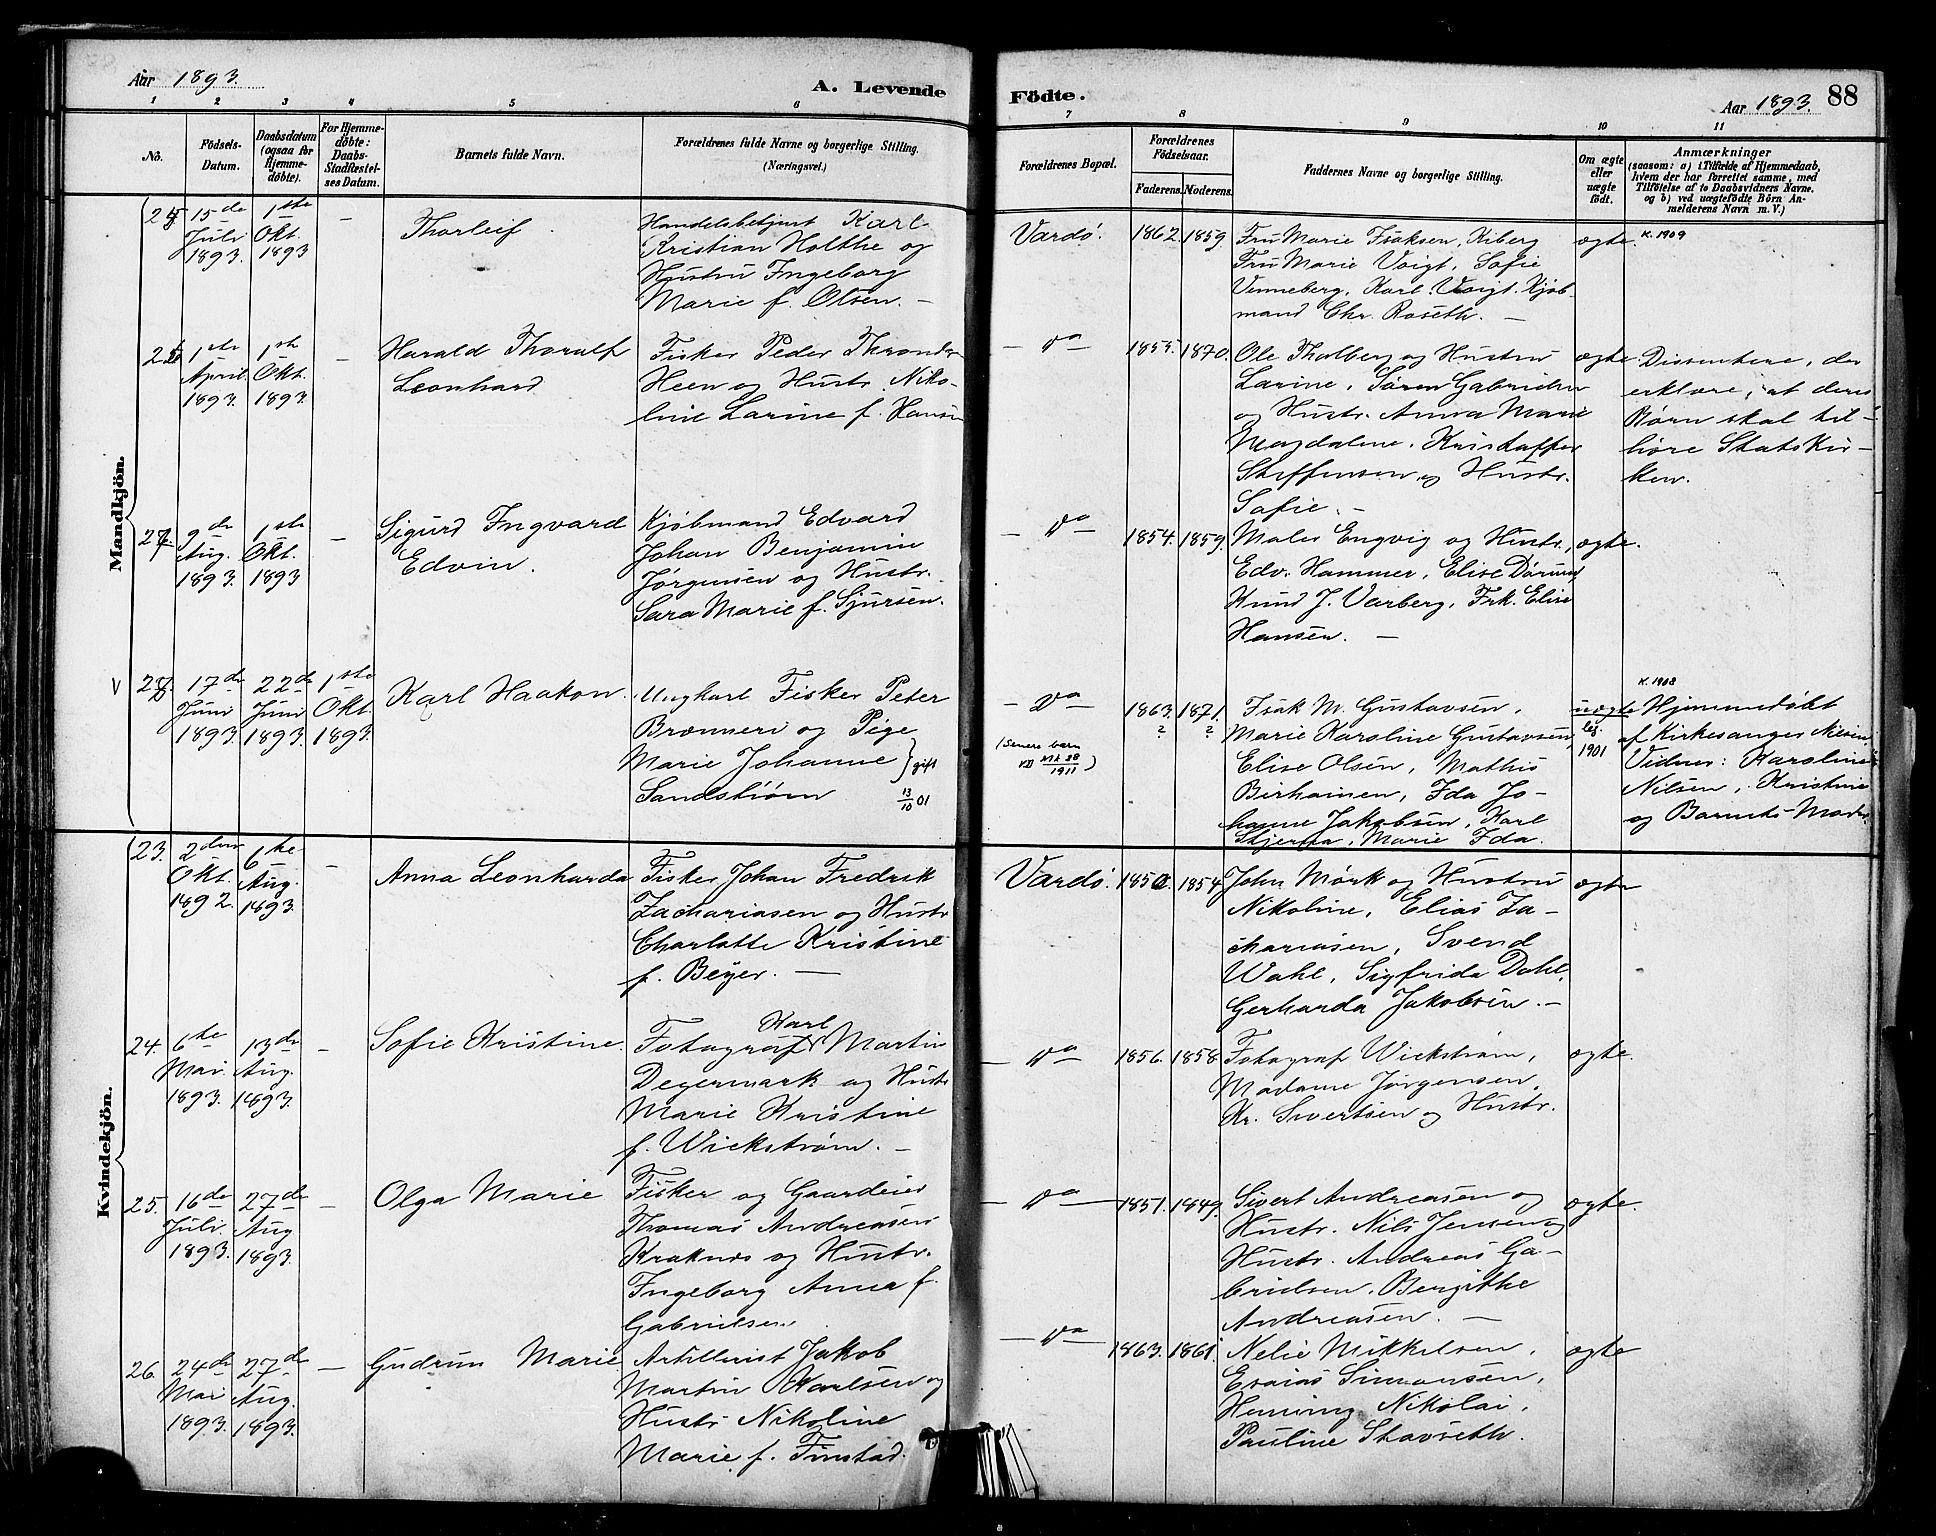 Aar 1893.
A. Levende
Födte.
Aar 1893.
88
1 2 3 4 5 6
7 8 9 10 11
No.
Födsels-
Datum.
Daabsdatum
(ogsaa for
Hjemme-
døbte).
For Hjemme-
døbte:
Daabs-
Stadfæstel-
ses Datum.
Barnets fulde Navn.
Forældrenes fulde Navne og borgerlige Stilling.
(Næringsvei.)
Forældrenes Bopæl.
Forældrenes
Födselsaar.
Faderens.
Moderens.
Faddernes Navne og borgerlige Stilling.
Om ægte
eller
uægte
født.
Anmærkninger
(saasom: a) i Tilfælde af Hjemmedaab,
hvem der har forrettet samme, med
Tilföielse af to Daabsvidners Navne.
og b) ved uægtefödte Börn An-
melderens Navn m. V.)
Mandkjön.
15de
Juli
1893.
1ste
Okt.
1893
Thorleif
Handelsbetjent Karl
Kristian Holthe og
Hustru Ingeborg
Marie f. Olsen. —
Vardö.
1862.
1859.
Fru Marie Isaksen, Kiberg
Fru Marie Voigt, Sofie
Venneberg, Karl Voigt, Kjøb-
mand Chr. Roseth. —
ægte.
K. 1909
1ste
April
1893.
1ste
Okt.
1893.
—
Harald Thoralf
Leonhard
Fisker Peder Thronds
Heen og Hustr. Niko-
line Larine f. Hansen
— Do —
1855.
1870.
Ole Tholberg og Hustru
Larine, Sören Gabrielsen
og Hustr. Anna Marie
Magdalene, Kristoffer
Steffensen og Hustr.
Sofie. —
ægte.
Dissentere, der
erklære, at deres
Børn skal til-
høre Statskir-
ken.
27.
9de
Aug.
1893.
1ste
Okt.
1893
—
Sigurd Ingvard
Edvin.
Kjøbmand Edvard
Johan Benjamin
Jørgensen og Hustr.
Sara Marie f. Sjursen.
— Do —
1854.
1859.
Maler Engvig og Hustr.,
Edv. Hammer, Elise Dørum,
Knud J. Varberg, Frk. Elise
Hansen. —
ægte.
V
17de
Juni
1893.
22de
Juni
1893.
1ste
Okt.
1893.
Karl Haakon.
Ungkarl Fisker Peter
Brænneri og Pige
Marie Johanne } gift
Sandstrøm 13/10 01
— Do —
(Senere barn
1911)
1863.
?
1871.
?
Isak M. Gustavsen,
Marie Karoline Gustavsen,
Elise Olsen, Mathis
Birhainen, Ida Jo-
hanne Jakobsen, Karl
Marie Ida.
uægte
leg.
1901
K. 1908
Hjemmedøbt
af Kirkesanger Nilsen,
Vidner: Karoline
Nilsen, Kristine
og Barnets Moder.
Kvindekjön.
23.
2den
Okt.
1892.
6te
Aug.
1893.
—
Anna Leonharda
Fisker Johan Fredrik
Zachariasen og Hustr.
Charlotte Kristine
f. Beyer. —
Vardö.
1850.
1854
John Mørk og Hustru
Nikoline, Elias Za-
chariasen, Svend
Wahl, Sigfrida Dahl,
Gerharda Jakobsen. —
ægte
24.
6te
Mai
1893.
13de
Aug.
1893.
—
Sofie Kristine.
Karl
Fotograf Martin
Degermark og Hustr.
Marie Kristine
f. Wickstrøm. —
— Do —
1856.
1858
Fotograf Wickstrøm,
Madame Jørgensen,
Kr. Sivertsen og Hustr.
ægte.
25.
16de
Juli
1893.
27de
Aug
1893.
—
Olga Marie
Fisker og Gaardeier
Thomas Andreasen
Kraknes og Hustr.
Ingeborg Anna f.
Gabrielsen.
— Do —
1851.
1849.
Sivert Andreasen og
Hustr. Nils Jensen og
Hustr. Andreas Ga-
brielsen. Bergithe
Andreasen. —
ægte.
26.
24de
Mai
1893.
27de
Aug.
1893.
—
Gudrun Marie
Artillerist Jakob
Martin Karlsen og
Hustr. Nikoline
Marie f. Finstad.
— Do —
1863.
1861.
Nelie Mikkelsen,
Esaias Simonsen,
Henning Nikolai,
Pauline Stavseth.
ægte